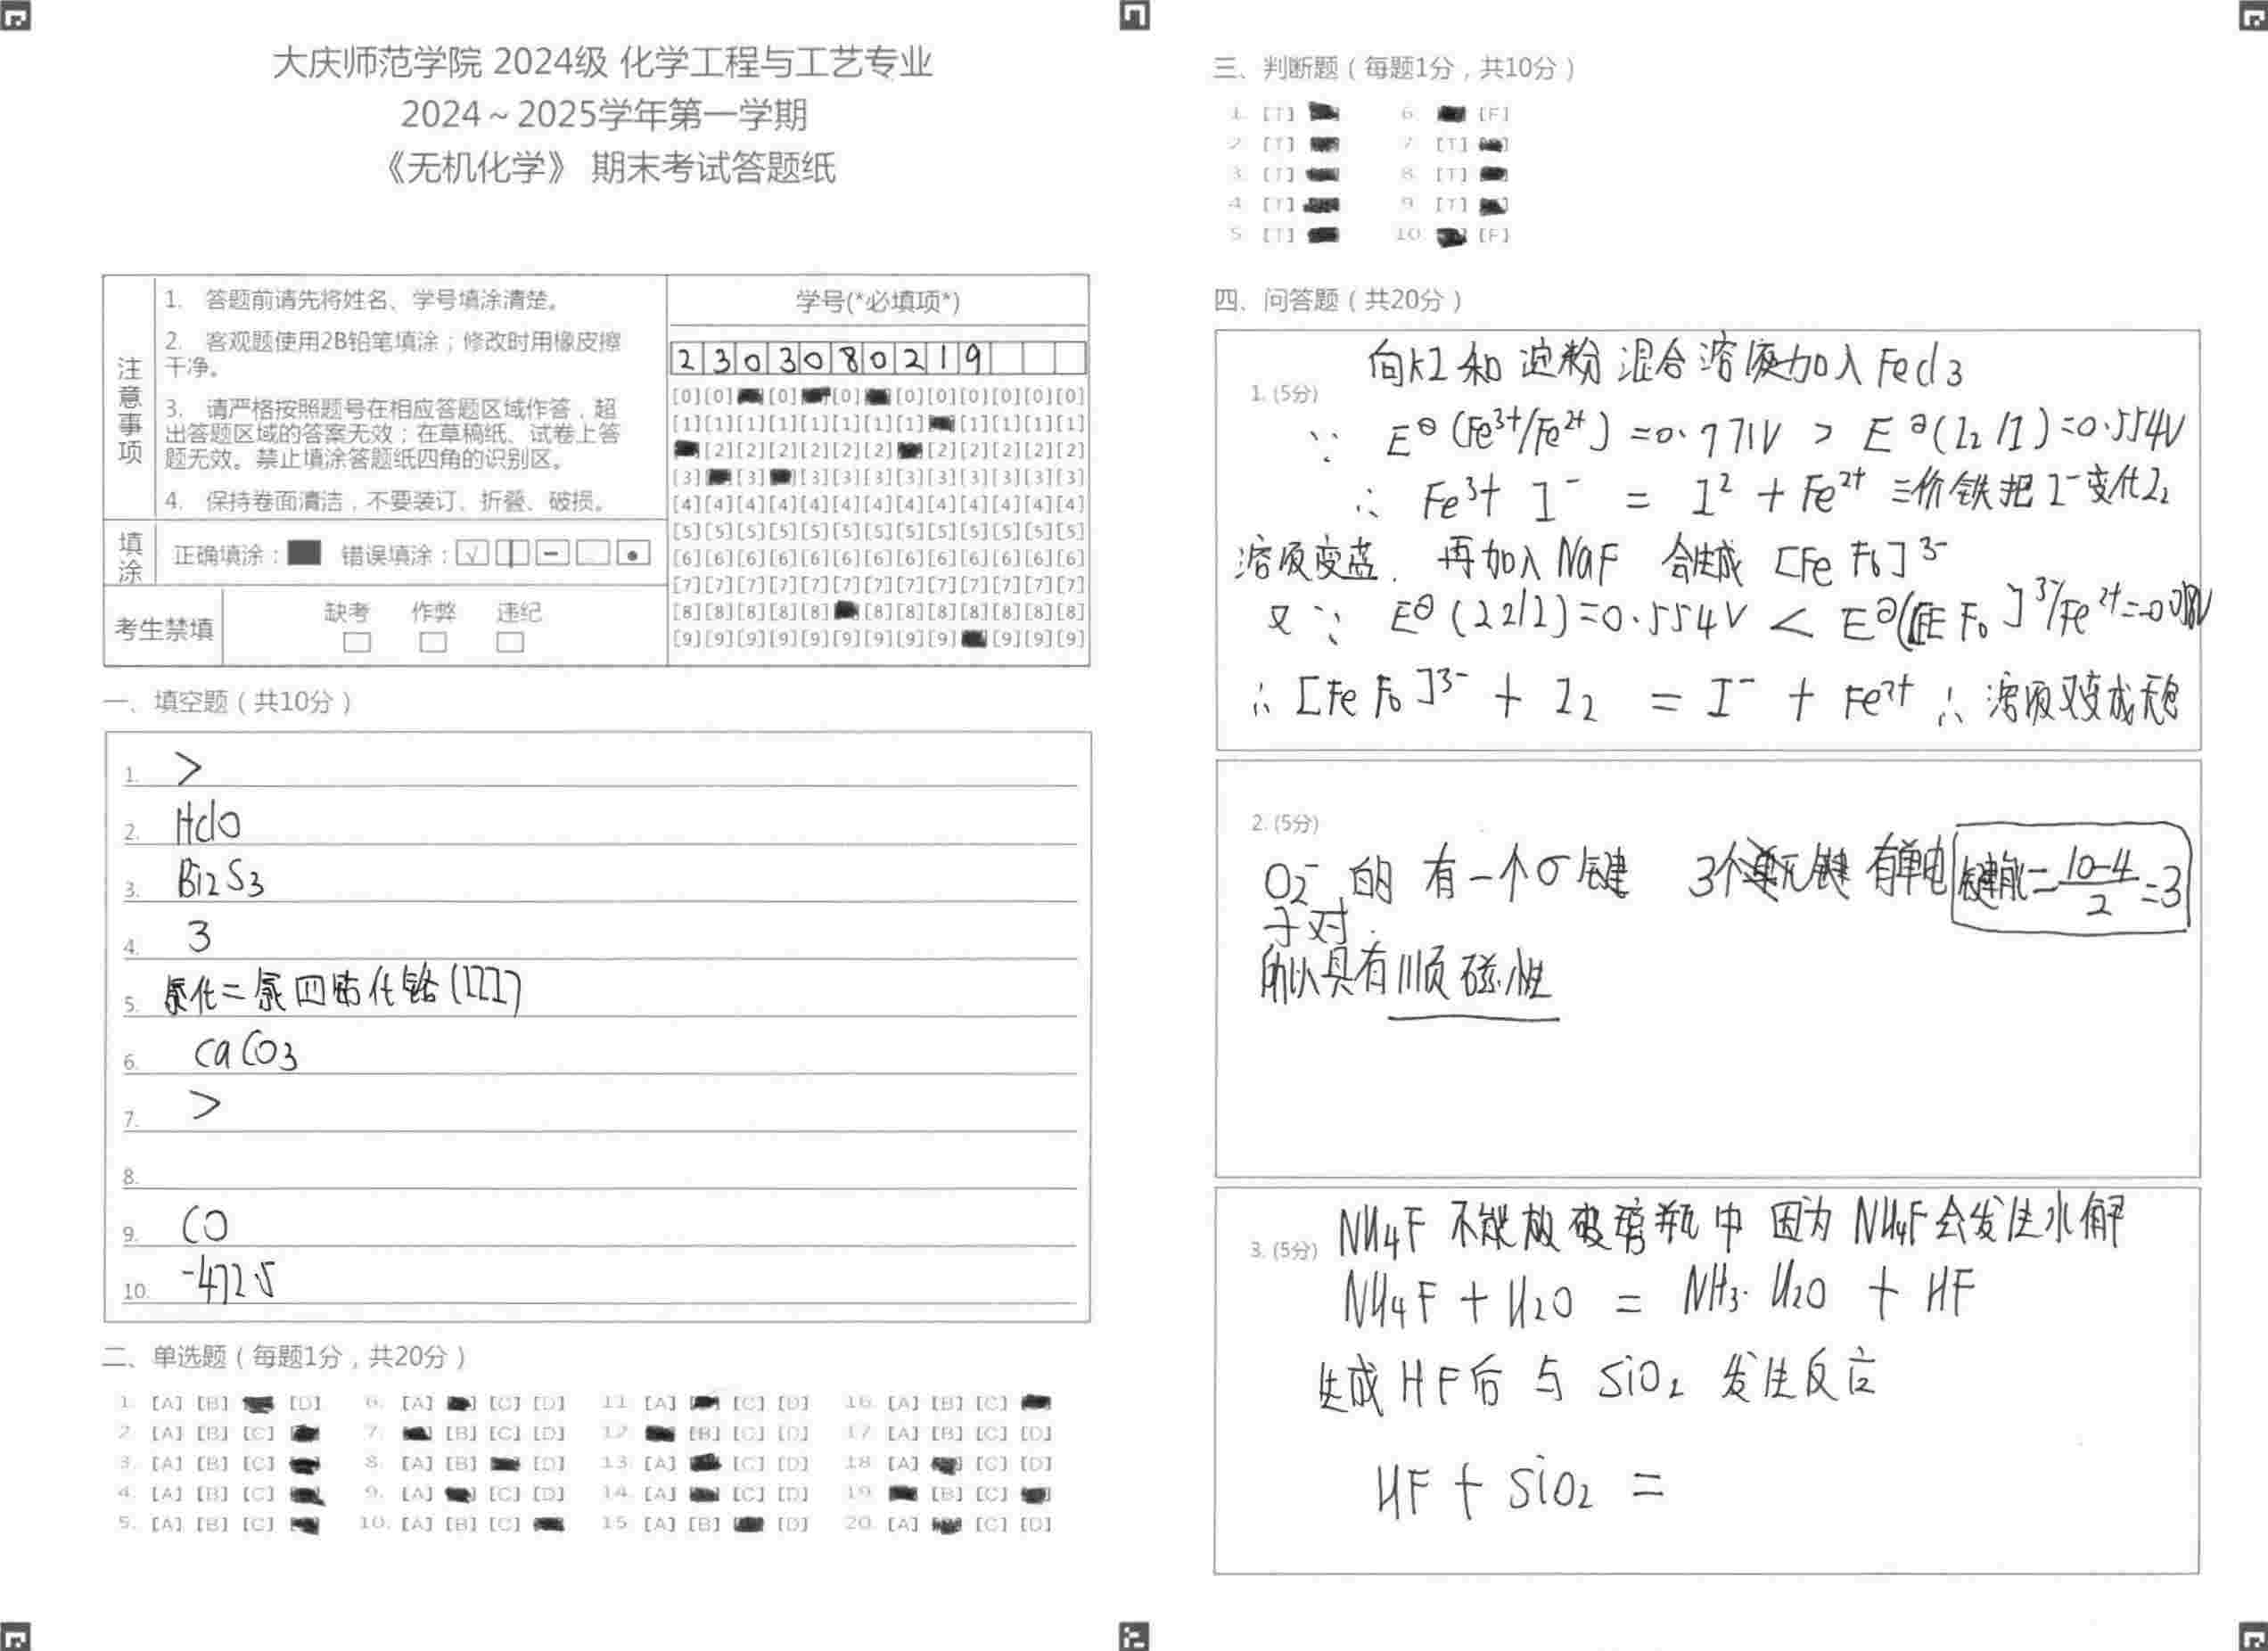 大庆师范学院 2024级 化学工程与工艺专业
2024～2025学年第一学期
《无机化学》 期末考试答题纸
注意事项
1. 答题前请先将姓名、学号填涂清楚。
2. 客观题使用2B铅笔填涂；修改时用橡皮擦
干净。
3. 请严格按照题号在相应答题区域作答，超
出答题区域的答案无效；在草稿纸、试卷上答
题无效。禁止填涂答题纸四角的识别区。
4. 保持卷面清洁，不要装订、折叠、破损。
填涂
正确填涂： 错误填涂：
考生禁填
缺考 作弊 违纪
学号(*必填项*)
2 3 0 3 0 8 0 2 1 9
[0][0] [0] [0] [0][0][0][0][0][0]
[1][1][1][1][1][1][1][1] [1][1][1][1]
[2][2][2][2][2][2] [2][2][2][2][2]
[3] [3] [3][3][3][3][3][3][3][3][3]
[4][4][4][4][4][4][4][4][4][4][4][4][4]
[5][5][5][5][5][5][5][5][5][5][5][5][5]
[6][6][6][6][6][6][6][6][6][6][6][6][6]
[7][7][7][7][7][7][7][7][7][7][7][7][7]
[8][8][8][8][8] [8][8][8][8][8][8][8]
[9][9][9][9][9][9][9][9][9] [9][9][9]
一、填空题（共10分）
1. >
2. HClO
3. Bi2S3
4. 3
5. 氯化二氯四 化铬(III)
6. CaCO3
7. >
8.
9. CO
10. -472.5
二、单选题（每题1分，共20分）
1. [A] [B] [D] 6. [A] [C] [D] 11. [A] [C] [D] 16. [A] [B] [C]
2. [A] [B] [C] 7. [B] [C] [D] 12. [B] [C] [D] 17. [A] [B] [C] [D]
3. [A] [B] [C] 8. [A] [B] [D] 13. [A] [C] [D] 18. [A] [C] [D]
4. [A] [B] [C] 9. [A] [C] [D] 14. [A] [C] [D] 19. [B] [C]
5. [A] [B] [C] 10. [A] [B] [C] 15. [A] [B] [D] 20. [A] [C] [D]
三、判断题（每题1分，共10分）
1. [T] 6. [F]
2. [T] 7. [T]
3. [T] 8. [T]
4. [T] 9. [T]
5. [T] 10. [F]
四、问答题（共20分）
1. (5分) 向KI和淀粉混合溶液加入FeCl3
∵ E⊖(Fe3+/Fe2+)=0.771V > E⊖(I2/I)=0.554V
∴ Fe3+ I- = I2 + Fe2+ 三价铁把I-变化I2
溶液变蓝. 再加入NaF 会生成 [FeF6]3-
又∵ E⊖(I2/I)=0.554V < E⊖([FeF6]3-/Fe2+
∴ [FeF6]3- + I2 = I- + Fe2+ ∴ 溶液又变成无色
2. (5分)
O2- 的 有一个σ键 3个 键 有单电 键能=10-4/2=3
子对.
所以具有顺磁性
3. (5分) NH4F 不能放玻璃瓶中 因为NH4F会发生水解
NH4F + H2O = NH3·H2O + HF
生成HF后 与 SiO2 发生反应
HF + SiO2 =